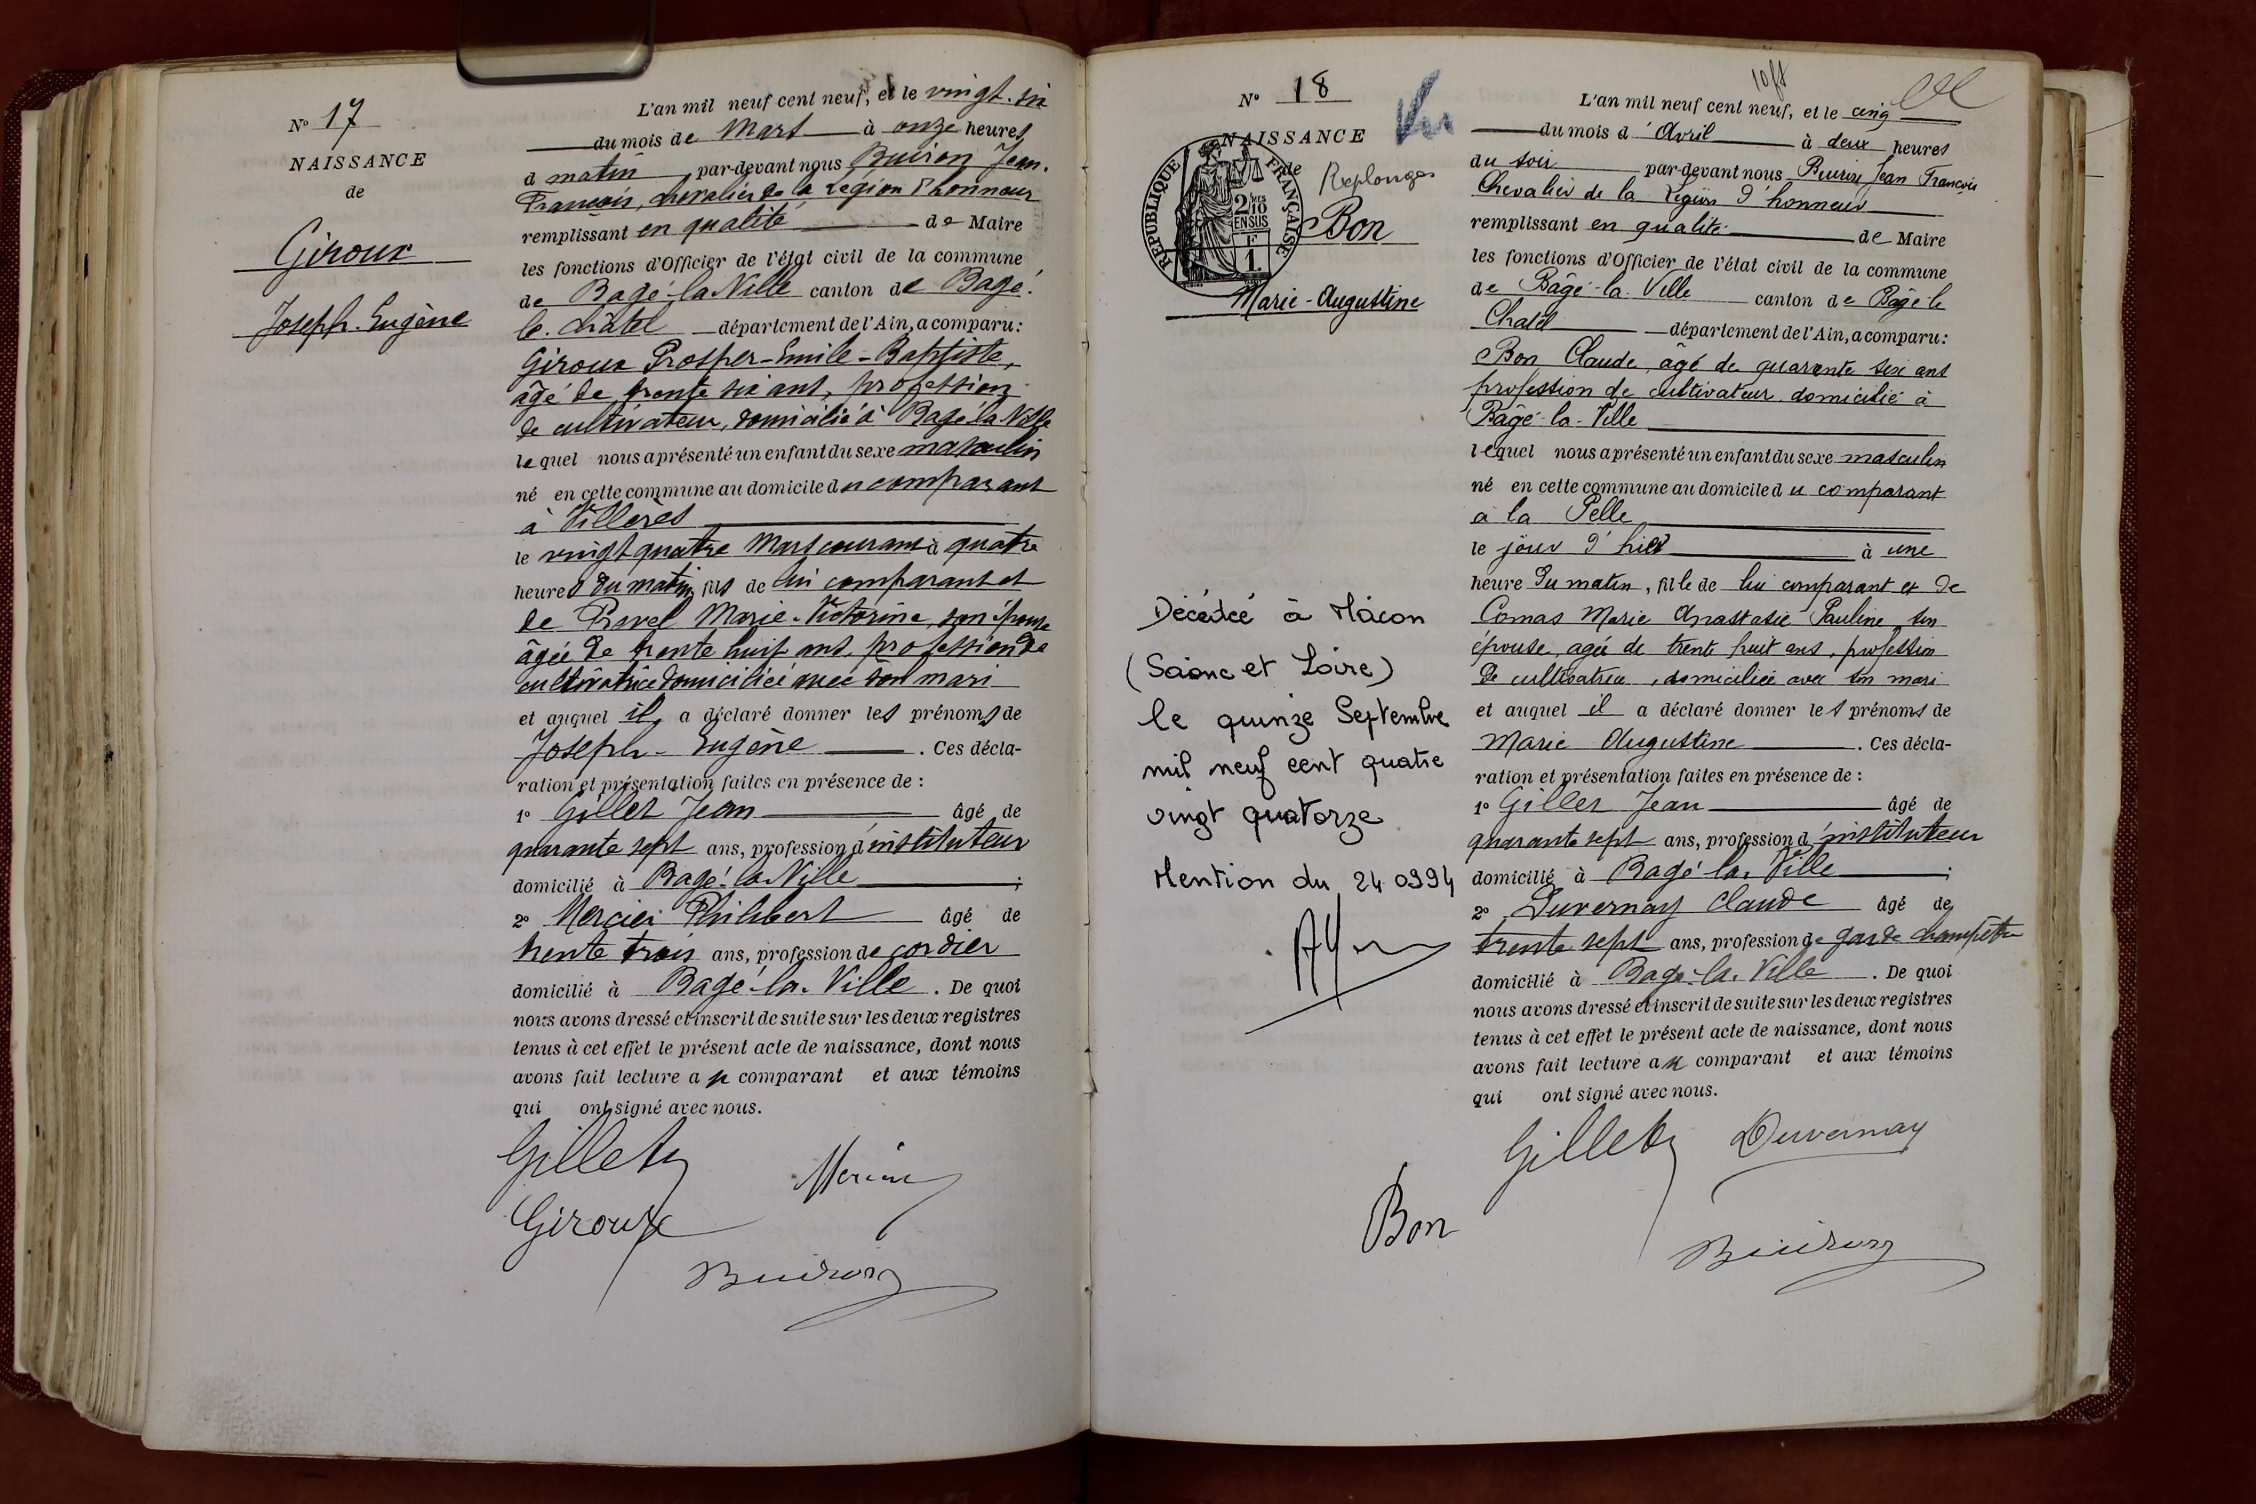 N° 17
NAISSANCE
de
Giroux
Joseph-Eugène
L'an mil neuf cent neuf, et le vingt-six
du mois de Mars à onze heures
d matin par-devant nous Buiron Jean-
François, chevalier de la Légion d'honneur
remplissant en qualité de Maire
les fonctions d'Officier de l'état civil de la commune
de Bagé-la-Ville canton de Bagé-
le-Châtel département de l'Ain, a comparu:
Giroux Prosper-Emile-Baptiste,
âgé de trente six ans, profession
de cultivateur, domicilié à Bagé-la-Ville
lequel nous a présenté un enfant du sexe masculin
né en cette commune au domicile du comparant
à Villerès
le vingt quatre Mars courant à quatre
heures du matin, fils de lui comparant et
de Revel Marie-Victorine, son épouse
âgée de trente huit ans, profession de
cultivatrice domiciliée avec son mari
et auquel il a déclaré donner les prénoms de
Joseph-Eugène . Ces décla-
ration et présentation faites en présence de :
1° Gillet Jean âgé de
quarante sept ans, profession d'instituteur
domicilié à Bagé-la-Ville ;
2° Mercier Philibert âgé de
trente trois ans, profession de cordier
domicilié à Bagé-la-Ville . De quoi
nous avons dressé et inscrit de suite sur les deux registres
tenus à cet effet le présent acte de naissance, dont nous
avons fait lecture au comparant et aux témoins
qui ont signé avec nous.
Gillet
Mercier
Giroux
Buiron
N° 18
Vu
NAISSANCE
de Replonges
RÉPUBLIQUE FRANÇAISE
2/10
EN SUS
F
1.
Bon
Marie-Augustine
Décédée à Mâcon
(Saône et Loire)
le quinze Septembre
mil neuf cent quatre
vingt quatorze
Mention du 24 09 94
L'an mil neuf cent neuf, et le cinq
du mois d'Avril à deux heures
du soir par-devant nous Buiron Jean François
Chevalier de la Légion d'honneur
remplissant en qualité de Maire
les fonctions d'Officier de l'état civil de la commune
de Bâgé-la-Ville canton de Bâgé-le
Chatel département de l'Ain, a comparu:
Bon Claude, âgé de quarante six ans
profession de cultivateur domicilié à
Bâgé-la-Ville
lequel nous a présenté un enfant du sexe masculin
né en cette commune au domicile du comparant
à la Pelle
le jour d'hier à une
heure du matin, fille de lui comparant et de
Comas Marie Anastasie Pauline son
épouse, agée de trente huit ans, profession
de cultivatrice, domiciliée avec son mari
et auquel il a déclaré donner les prénoms de
Marie Augustine . Ces décla-
ration et présentation faites en présence de :
1° Gillet Jean âgé de
quarante sept ans, profession d'instituteur
domicilié à Bagé-la-Ville ;
2° Duvernay Claude âgé de
trente sept ans, profession de garde champêtre
domicilié à Bagé-la-Ville . De quoi
nous avons dressé et inscrit de suite sur les deux registres
tenus à cet effet le présent acte de naissance, dont nous
avons fait lecture au comparant et aux témoins
qui ont signé avec nous.
Gillet Duvernay
Bon
Buiron